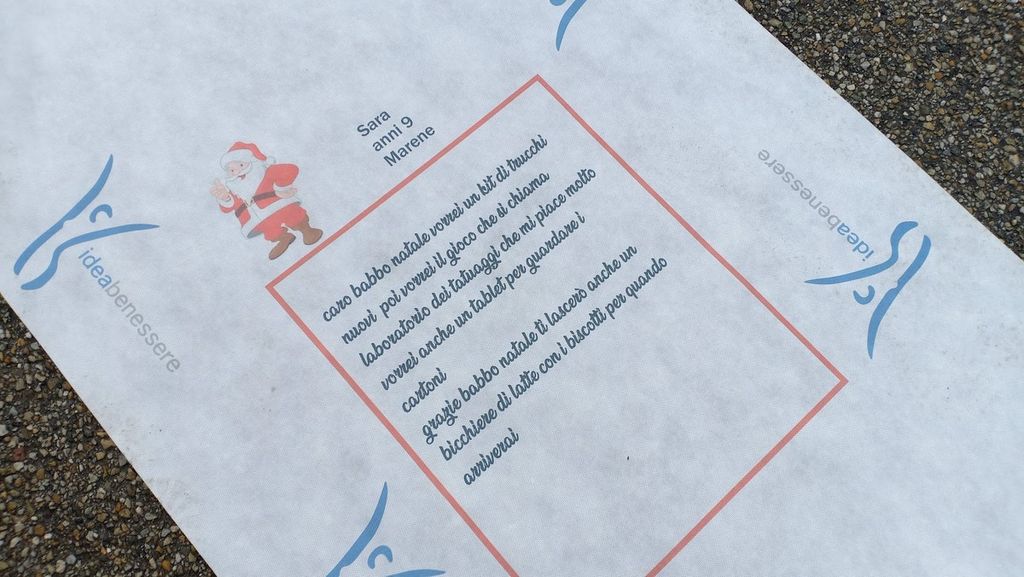 Sara
anni 9
Marene
caro babbo natale vorrei un kit di trucchi
nuovi poi vorrei il gioco che si chiama
laboratorio dei tatuaggi che mi piace molto
vorrei anche un tablet per guardare i
cartoni
grazie babbo natale ti lascerò anche un
bicchiere di latte con i biscotti per quando
arriverai
ideabenessere
ideabenessere